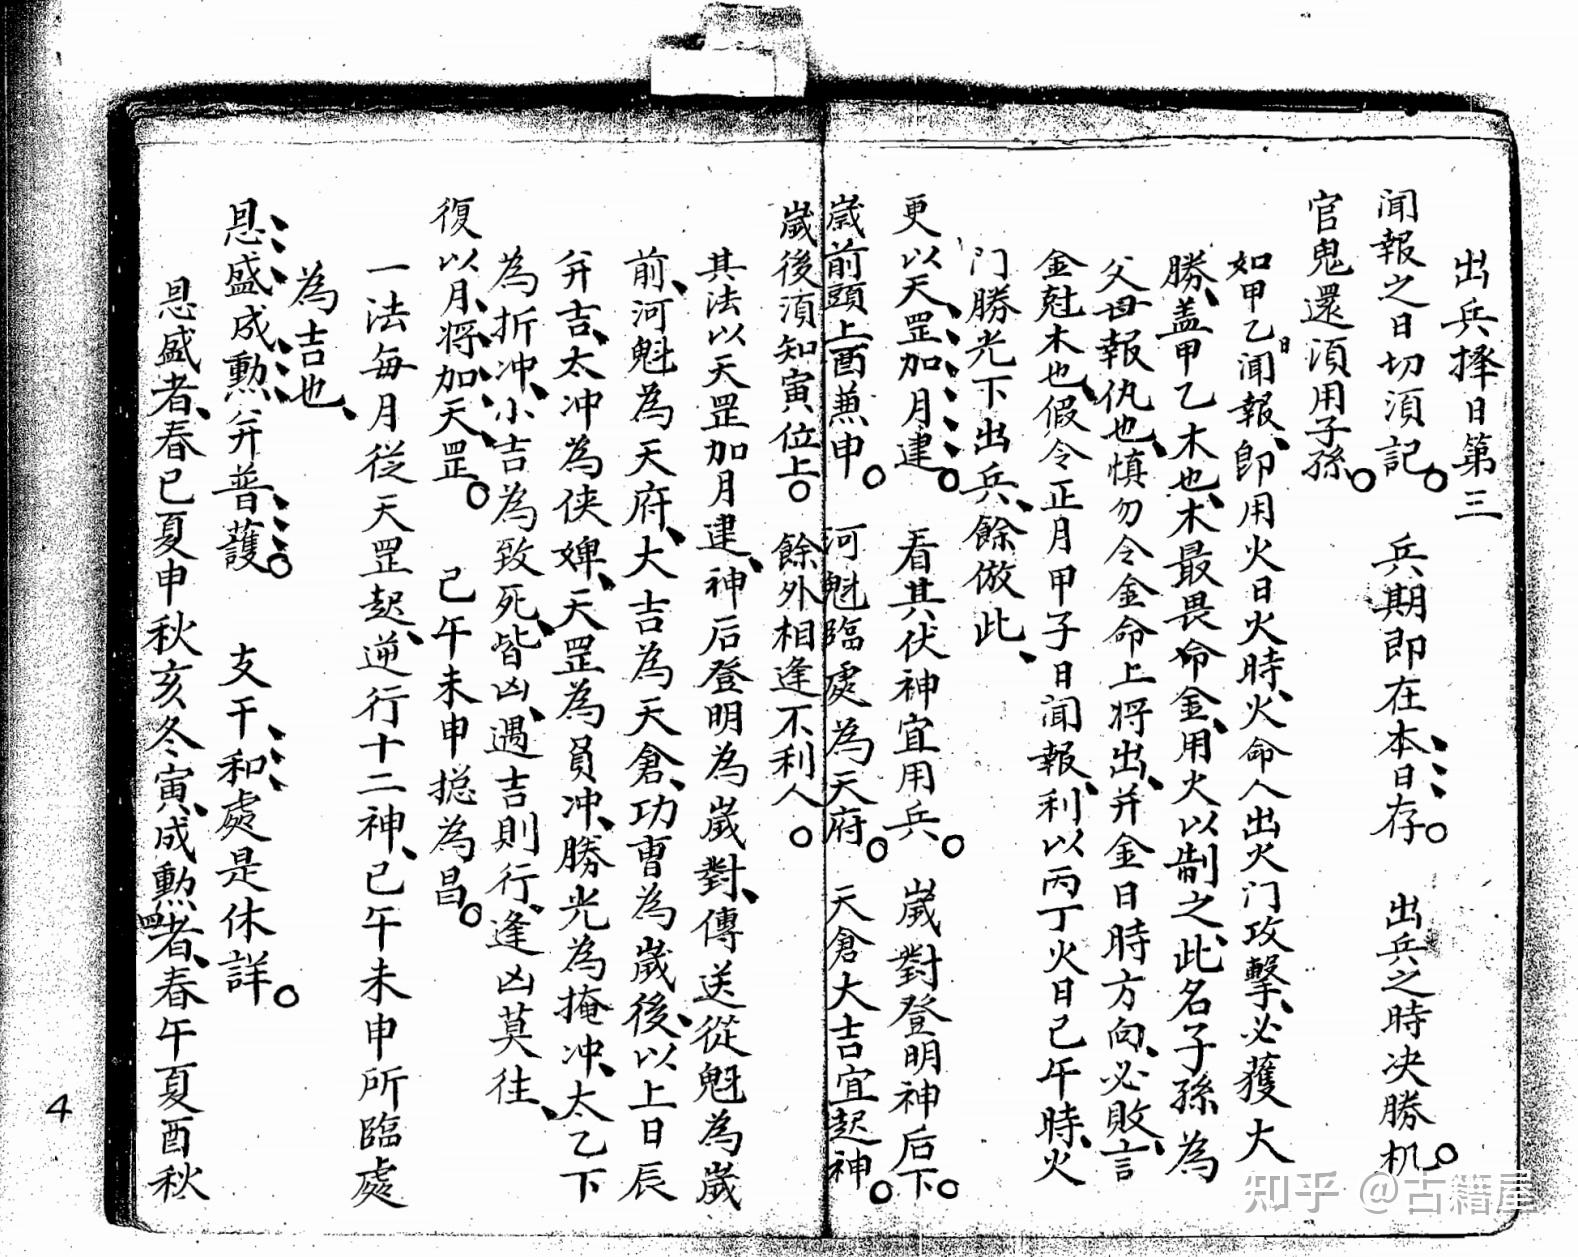 出兵擇日第三
聞報之日切須記。 兵期即在本日存。 出兵之時决勝机。
官鬼還須用子孫。
如甲乙日聞報、卽用火日火時、火命人出火门攻擊、必獲大
勝、盖甲乙木也、木最畏命金、用火以制之、此名子孫為
父母報仇也、慎勿令金命上将出、并金日時方向、必敗、言
金尅木也、假令正月甲子日聞報、利以丙丁火日巳午時、火
门勝光下出兵、餘倣此、
更以天罡加月建。 看其伏神宜用兵。 歲對登明神后下。
歲前頭上酉兼申。 河魁臨處為天府。 天倉大吉宜起神。
歲後須知寅位上。 餘外相逢不利人。
其法以天罡加月建、神后登明為歲對、傳送從魁為歲
前、河魁為天府、大吉為天倉、功曹為歲後、以上日辰
并吉、太冲為侠婢、天罡為員冲、勝光為掩冲、太乙下
為折冲、小吉為致死、皆凶、遇吉則行、逢凶莫往、
復以月将加天罡。 己午未申捴為昌。
一法每月從天罡起、逆行十二神、已午未申所臨處
為吉也、
恳盛成勲并普護。 支干和處是休詳。
恳盛者、春已夏申秋亥冬寅、成勲者、春午夏酉秋
4
知乎 @古籍屋